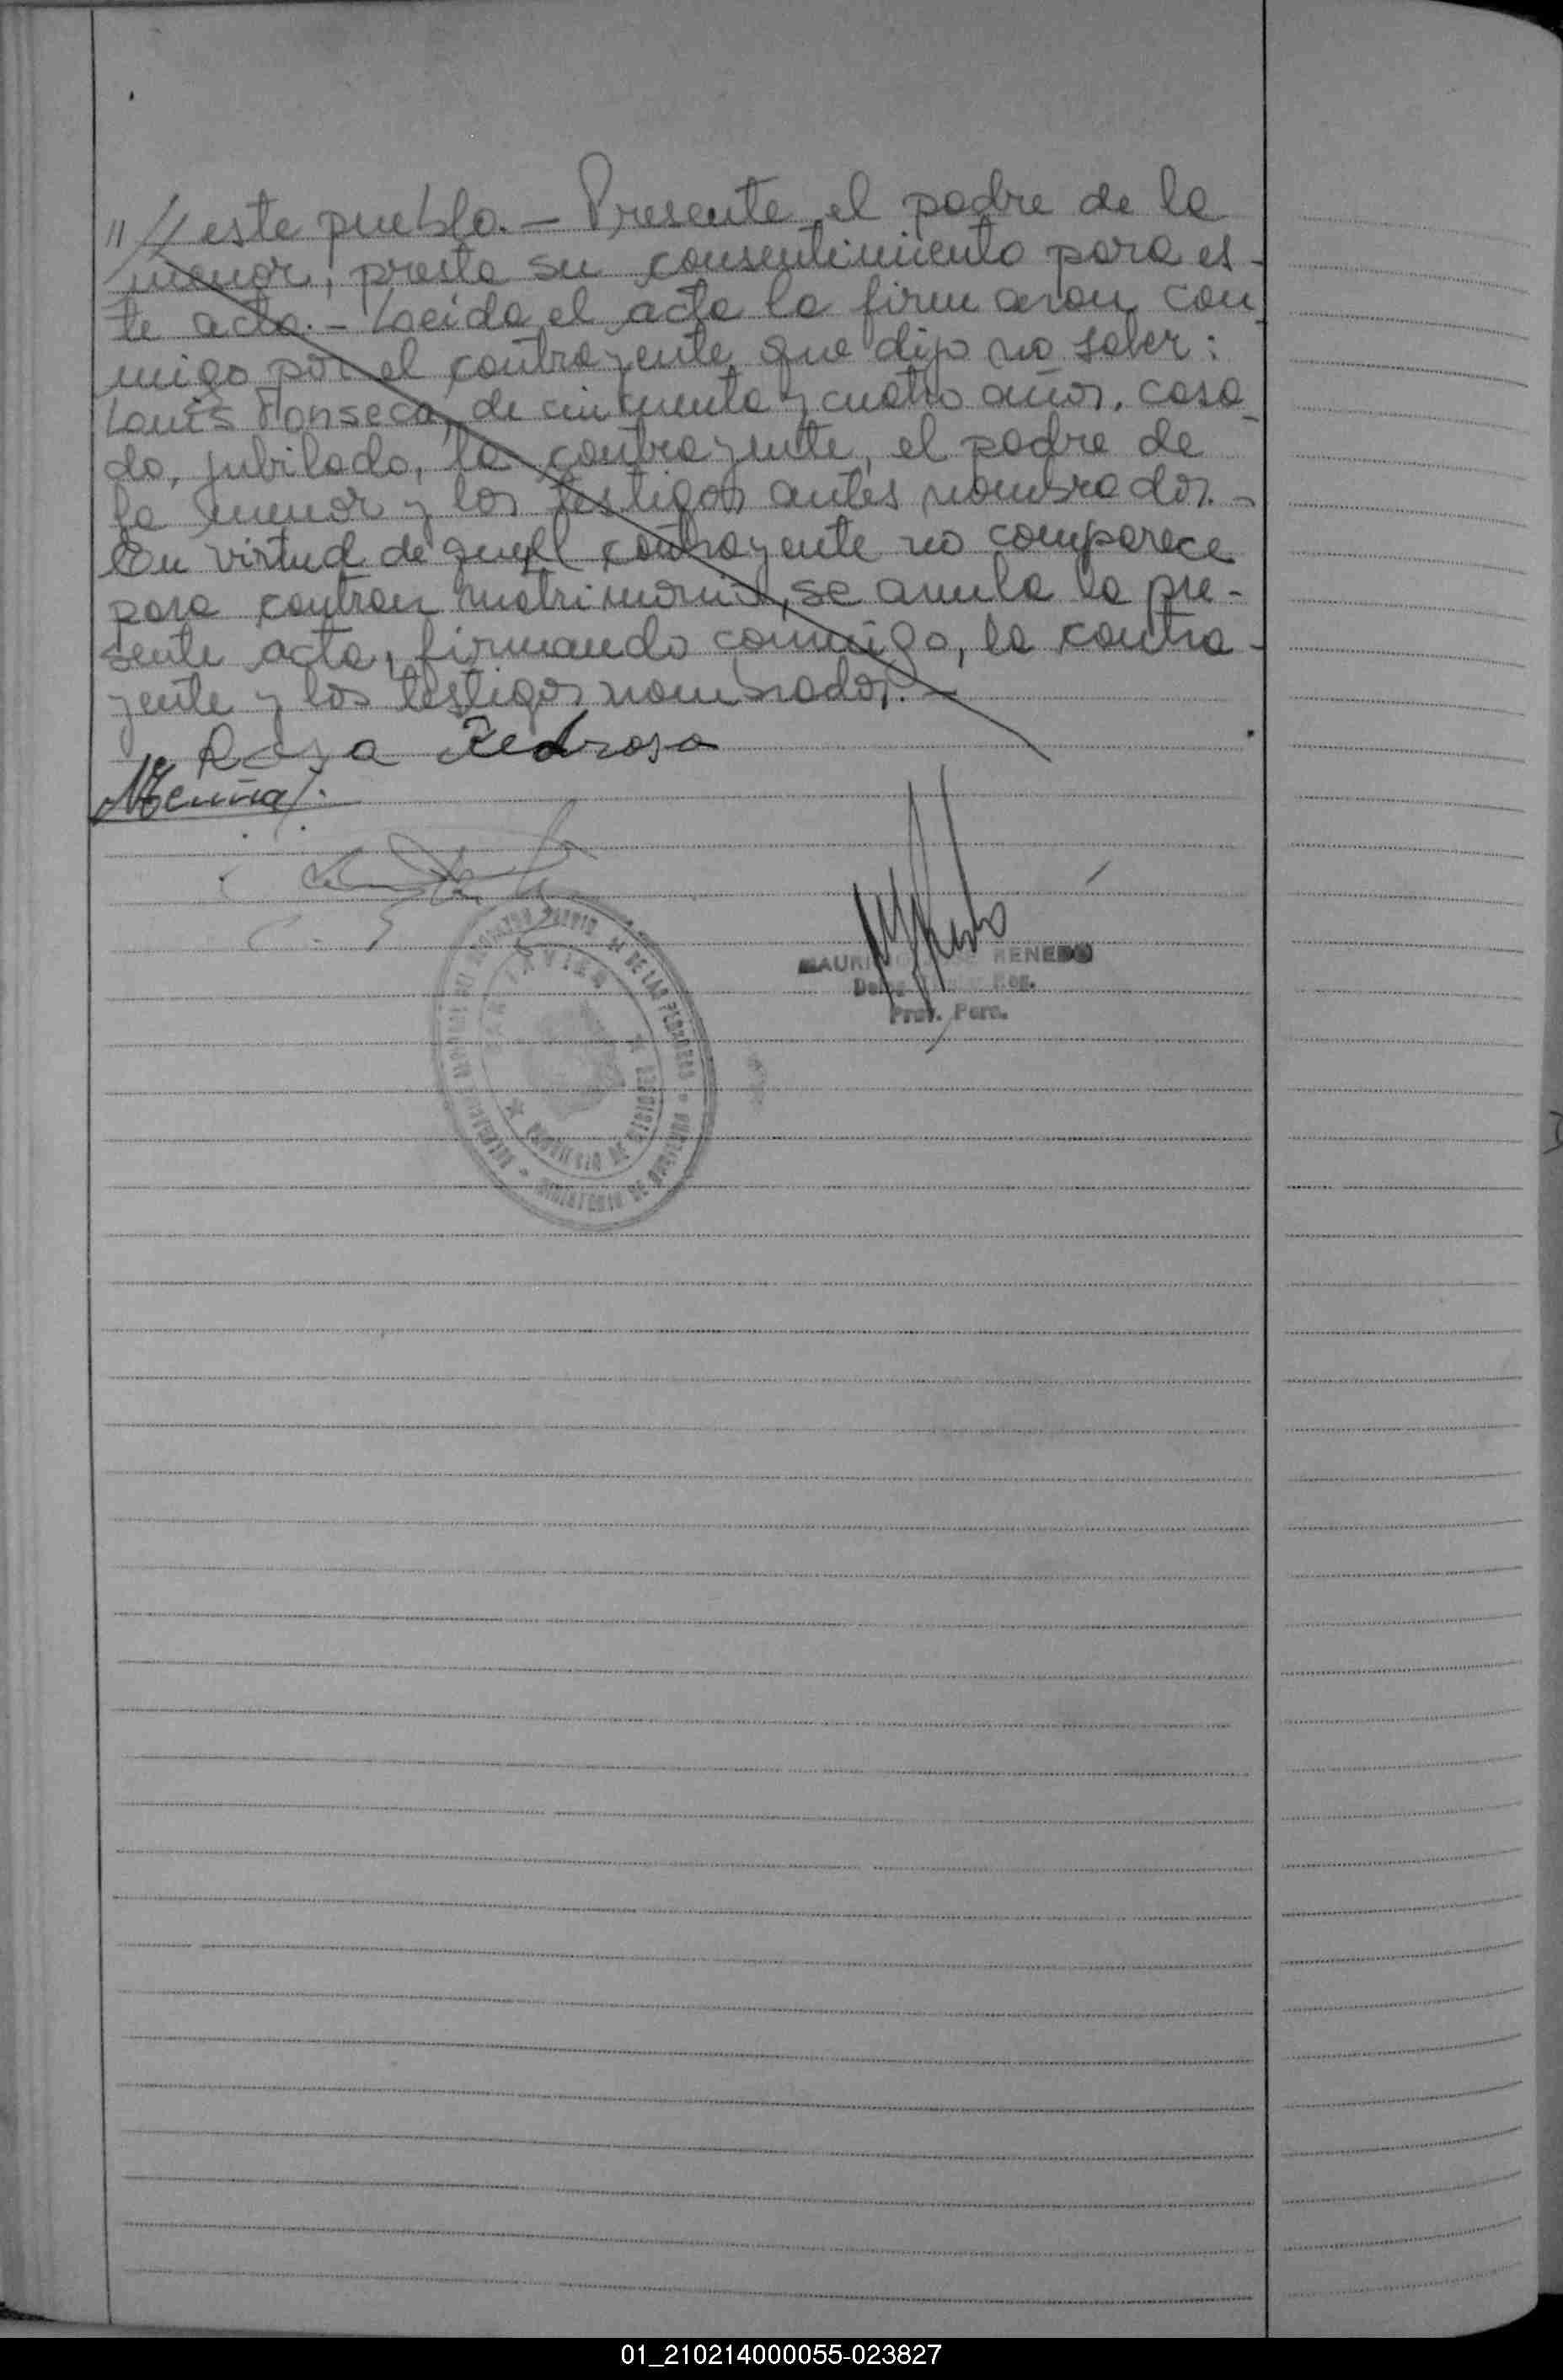 " // este pueblo. — Presente el padre de la
menor, presta su consentimiento para es-
te acto. — Leida el acta la firmaron con
migo por el contrayente que dijo no saber:
Louis Fonseca, de cincuenta y cuatro años, casa-
do, jubilado, la contrayente, el padre de
la menor y los testigos antes nombrados. -
En virtud de que el contrayente no comparece
para contraer matrimonio, se anula la pre-
sente acta, firmando conmigo, la contra-
yente y los testigos nombrados. —
Rosa Pedrosa
MAURI RENEDO
Prov. Perm.
SAN JAVIER
01_210214000055-023827